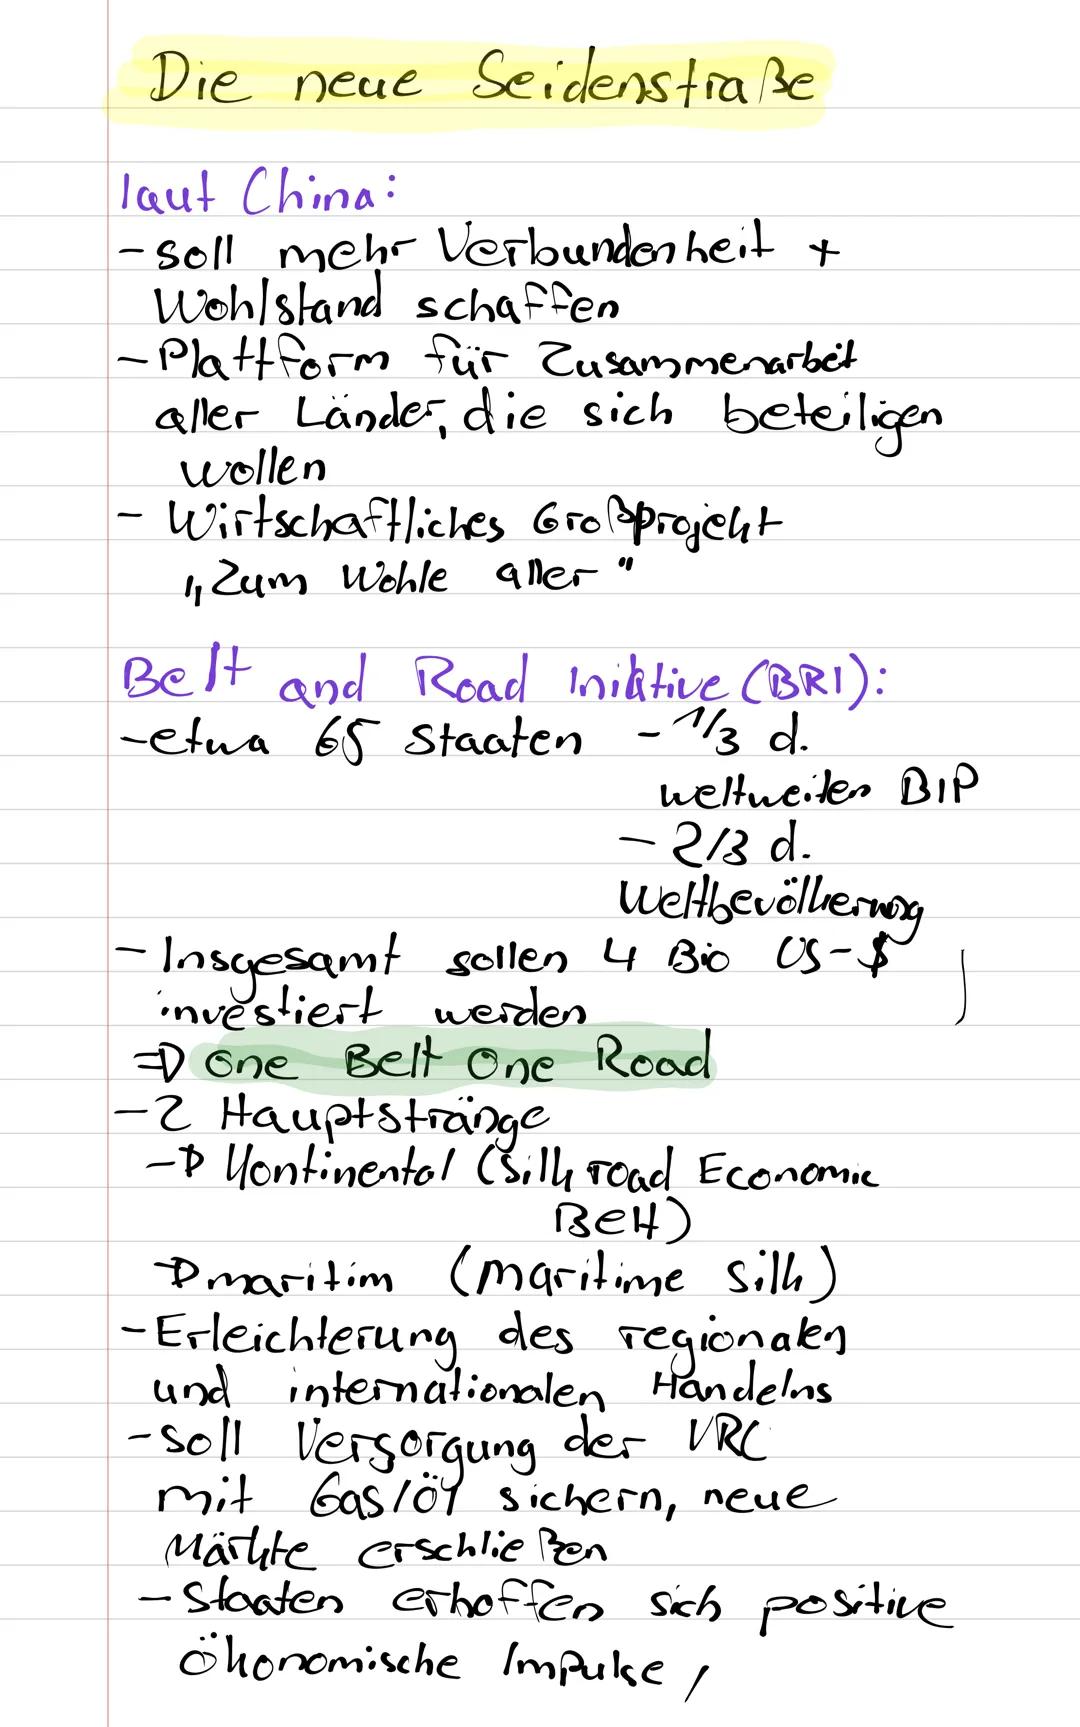 Die neue Seidenstraße
laut China:
- soll mehr Verbundenheit +
Wohlstand schaffen
- Plattform für Zusammenarbeit
aller Länder, die sich beteiligen
wollen
- Wirtschaftliches Großprojekt
"Zum Wohle aller"
Belt and Road Initiative (BRI):
- etwa 65 Staaten - 1/3 d.
weltweiten BIP
- 2/3 d.
Weltbevölkerung
- Insgesamt sollen 4 Bio US-$
investiert werden
=> One Belt One Road
- 2 Hauptstränge
-> Kontinental (Silk road Economic
Belt)
-> maritim (maritime Silk)
- Erleichterung des regionalen
und internationalen Handelns
- soll Versorgung der VRC
mit Gas/Öl sichern, neue
Märkte erschließen
- Staaten erhoffen sich positive
ökonomische Impulse,